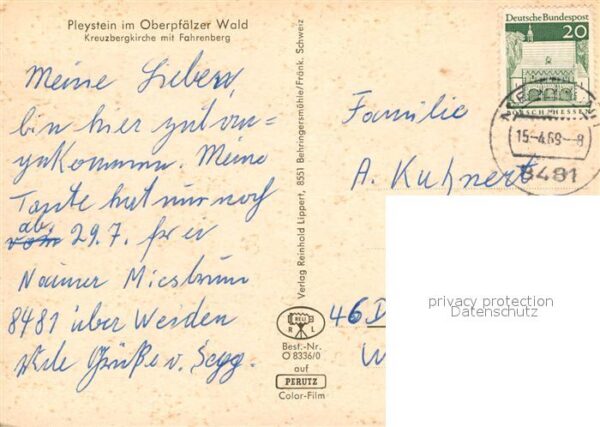 Pleystein im Oberpfälzer Wald
Kreuzbergkirche mit Fahrenberg
Meine Lieben,
bin hier gut an-
gekommen. Meine
Tante hat nur noch
ab 29.7. frei
8481 über Weiden
Viele Grüße v.
Verlag Reinhold Lippert, 8551 Behringersmühle/Fränk. Schweiz
RELI
R L
Best.-Nr.
O 8336/0
auf
PERUTZ
Color-Film
Deutsche Bundespost
20
LORSCH/HESSEN
15.-4.69.-8
8481
Familie
A. Kuhnert
46 D
W
privacy protection
Datenschutz